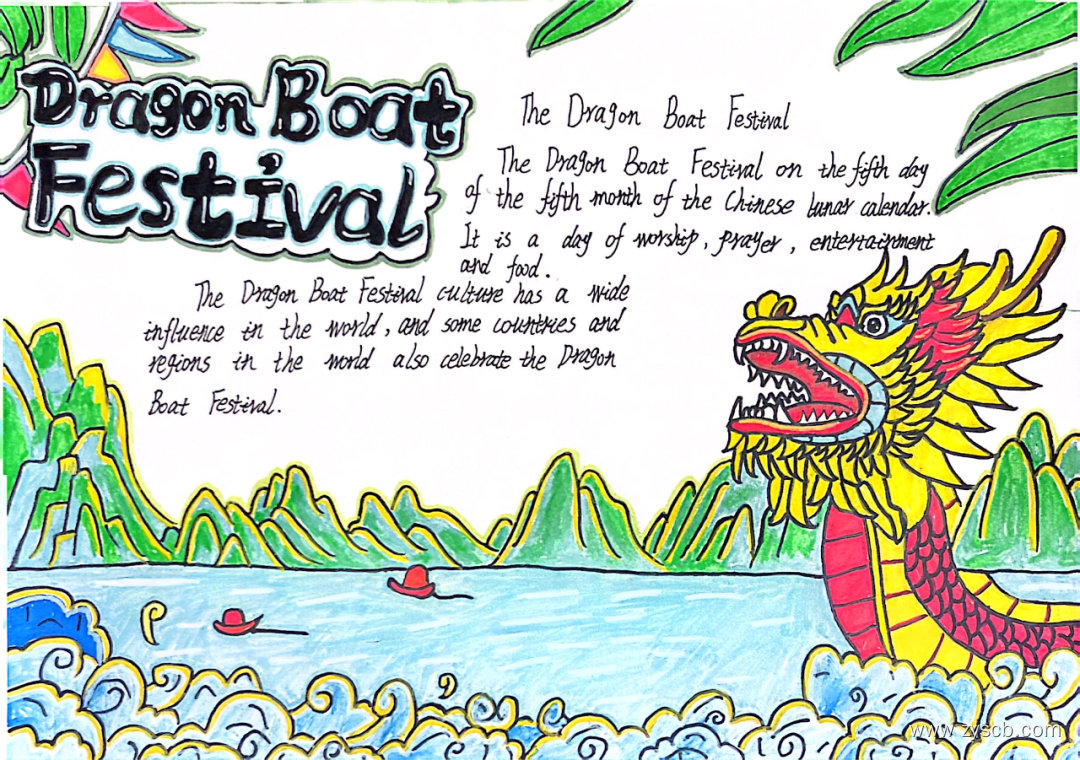 Dragon Boat
Festival
The Dragon Boat Festival
The Dragon Boat Festival on the fifth day
of the fifth month of the Chinese lunar calendar.
It is a day of worship, prayer, entertainment
and food.
The Dragon Boat Festival culture has a wide
influence in the world, and some countries and
regions in the world also celebrate the Dragon
Boat Festival.
www.zyscb.com